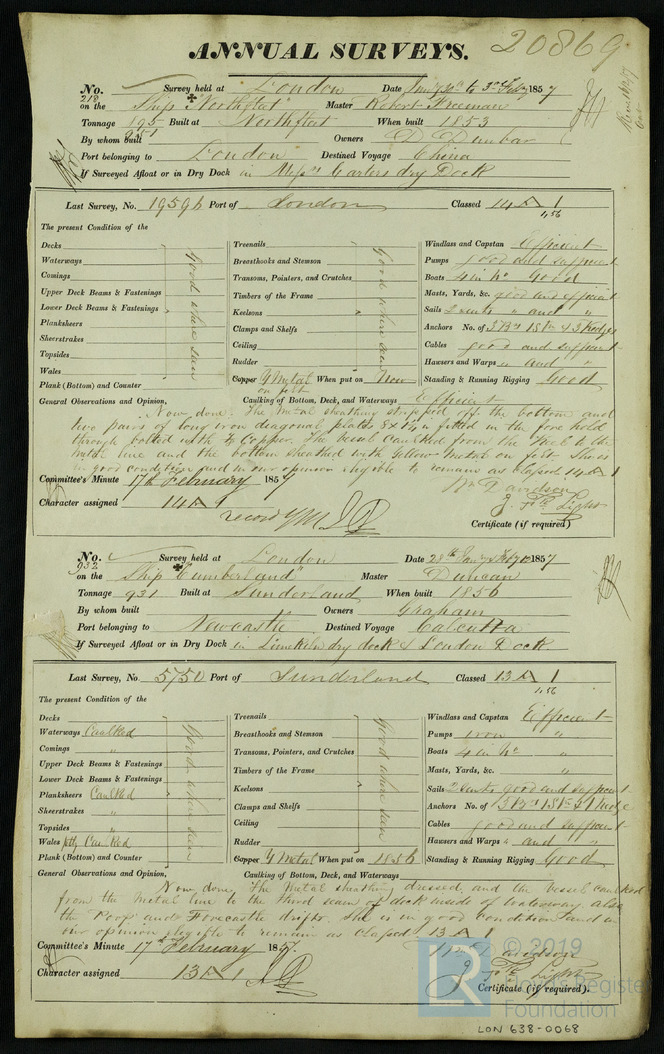 ANNUAL SURVEYS. 20869
No. 218 Survey held at London Date 1857
on the Ship "Northfleet" Master Robert Freeman
Tonnage 951 Built at Northfleet When built 1853
By whom built Owners D Dunbar
Port belonging to London Destined Voyage China
If Surveyed Afloat or in Dry Dock in dry Dock
Last Survey, No. 19596 Port of London Classed 14 A 1
4,56
The present Condition of the
Decks
Waterways
Comings
Upper Deck Beams & Fastenings
Lower Deck Beams & Fastenings
Planksheers
Sheerstrakes
Topsides
Wales
Plank (Bottom) and Counter
Good where seen
Treenails
Breasthooks and Stemson
Transoms, Pointers, and Crutches
Timbers of the Frame
Keelsons
Clamps and Shelfs
Ceiling
Rudder
Copper Y Metal When put on New
on felt
Good where seen
Windlass and Capstan Efficient
Pumps good and sufficient
Boats 4 in No Good
Masts, Yards, &c. good and efficient
Sails 2 suits " and "
Anchors No. of 3 Brs 1 St & 3 Kedges
Cables good and sufficient
Hawsers and Warps " and "
Standing & Running Rigging Good
General Observations and Opinion, Caulking of Bottom, Deck, and Waterways Efficient
Now done. The Metal sheathing stripped off the bottom and
two pairs of long iron diagonal plates fitted in the fore hold
through bolted with Copper. The vessel Caulked from the Keel to the
metal line and the bottom sheathed with Yellow Metal on felt. She is
in good condition and in our opinion eligible to remain as Classed 14 A 1
Committee's Minute 17th February 1857 Wm Davidson
Character assigned 14 A 1 J. Light
record YM
Certificate (if required)
No. 932 Survey held at London Date 1857
on the Ship "Cumberland" Master Duncan
Tonnage 931 Built at Sunderland When built 1856
By whom built Owners Graham
Port belonging to Newcastle Destined Voyage Calcutta
If Surveyed Afloat or in Dry Dock in Limekiln dry dock & London Dock.
Last Survey, No. 5750 Port of Sunderland Classed 13 A 1
4,56
The present Condition of the
Decks
Waterways Caulked
Comings "
Upper Deck Beams & Fastenings
Lower Deck Beams & Fastenings
Planksheers Caulked
Sheerstrakes "
Topsides "
Wales Caulked
Plank (Bottom) and Counter
Good where seen
Treenails
Breasthooks and Stemson
Transoms, Pointers, and Crutches
Timbers of the Frame
Keelsons
Clamps and Shelfs
Ceiling
Rudder
Copper Y Metal When put on 1856
Good where seen
Windlass and Capstan Efficient
Pumps iron "
Boats 4 in No "
Masts, Yards, &c. "
Sails 2 suits good and sufficient
Anchors No. of 3 Brs 1 St & 1 Kedge
Cables good and sufficient
Hawsers and Warps " and "
Standing & Running Rigging Good
General Observations and Opinion, Caulking of Bottom, Deck, and Waterways
Now done. The Metal sheathing dressed, and the vessel caulked
from the Metal line to the third seam of deck inside of waterway also
the Poop and Forecastle drifts. She is in good condition and in
our opinion eligible to remain as Classed 13 A 1
Committee's Minute 17th February 1857. Wm Davidson
Character assigned 13 A 1 J. Light
Certificate (if required).
LR © 2019
Lloyd's Register
Foundation
LON 638-0068